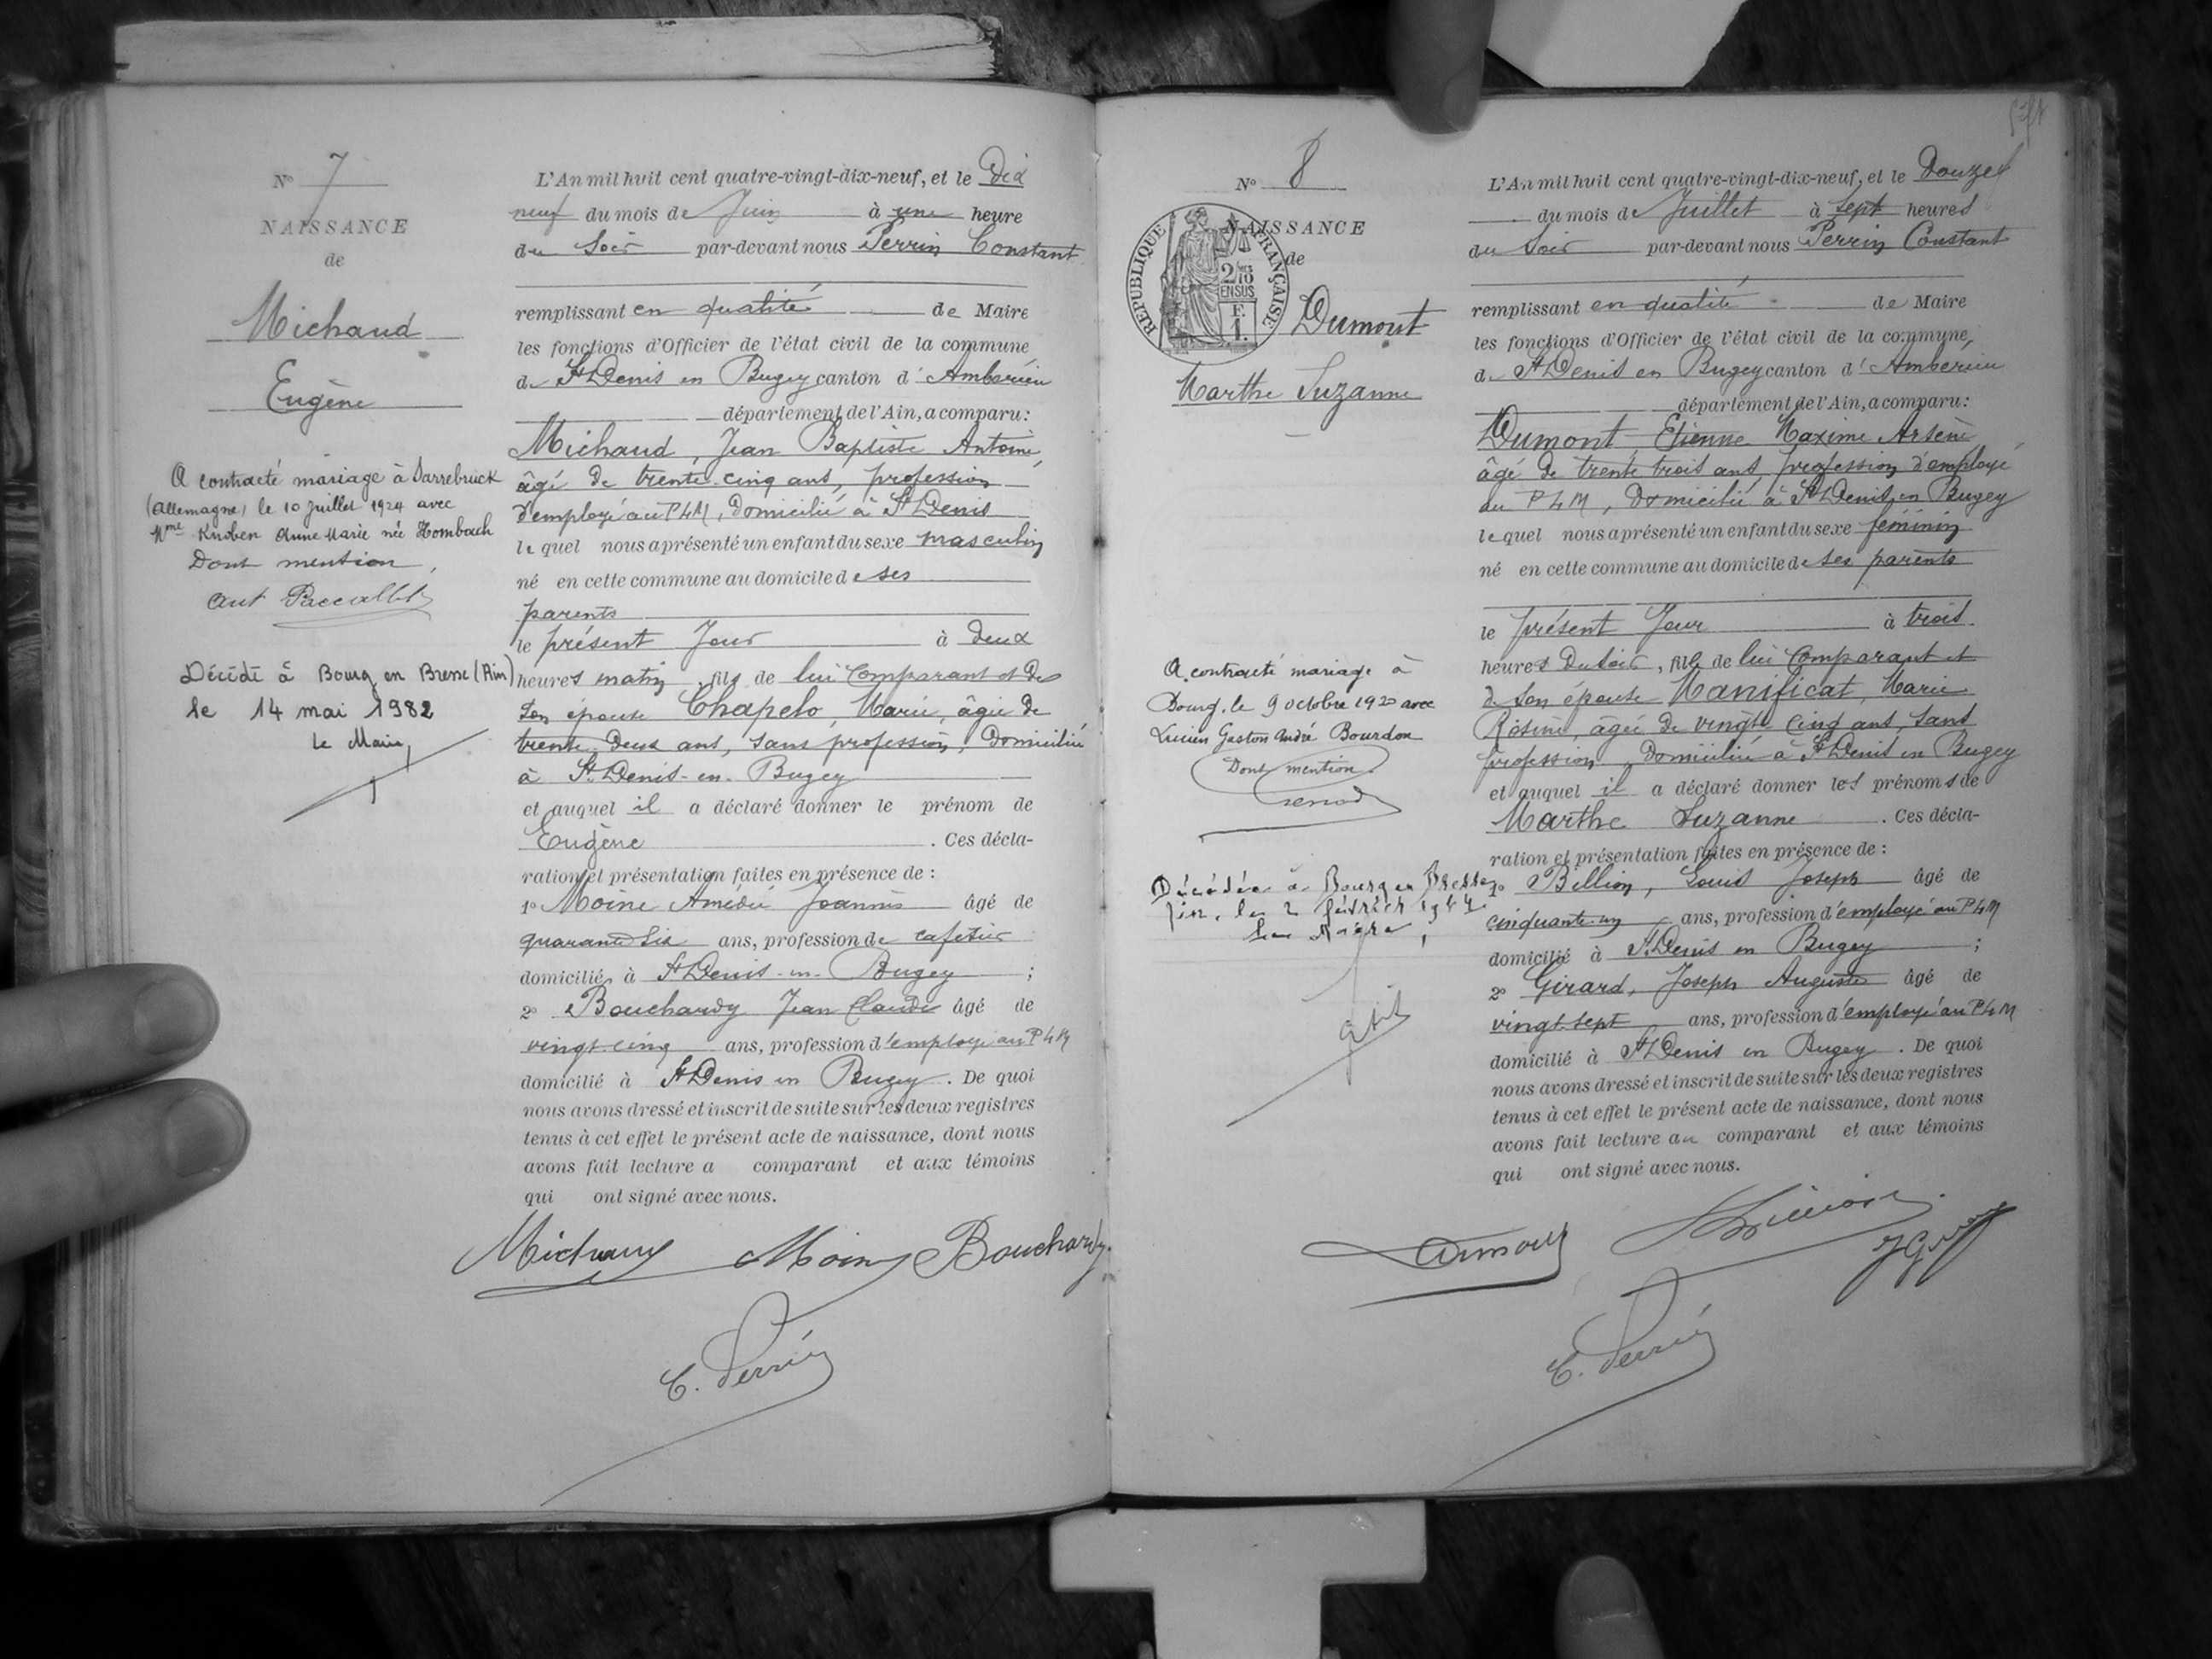 N° 7
NAISSANCE
de
Michaud
Eugène
A contracté mariage à Sarrebruck
(Allemagne) le 10 Juillet 1924 avec
Mme Knoben Anne Marie née Hombach
Dont mention,
Décédé à Bourg en Bresse (Ain)
le 14 mai 1982
le Maire,
L'An mil huit cent quatre-vingt-dix-neuf, et le Dix
neuf du mois de Juin à une heure
du Soir par-devant nous Perrin Constant
remplissant en qualité de Maire
les fonctions d'Officier de l'état civil de la commune
de St Denis en Bugey canton d'Ambérieu
département de l'Ain, a comparu:
Michaud, Jean Baptiste Antoine,
âgé de trente-cinq ans, profession
d'employé au PLM, domicilié à St Denis
lequel nous a présenté un enfant du sexe masculin
né en cette commune au domicile de ses
parents
le présent Jour à deux
heures matin, fils de lui Comparant et de
son épouse Chapelo, Marie, âgée de
trente deux ans, sans profession, domiciliée
à St Denis-en-Bugey
et auquel il a déclaré donner le prénom de
Eugène. Ces décla-
ration et présentation faites en présence de :
1° Moine Amédée Joannès âgé de
quarante six ans, profession de cafetier
domicilié à St Denis-en-Bugey ;
2° Bouchardy Jean Claude âgé de
vingt-cinq ans, profession d'employé au PLM
domicilié à St Denis en Bugey. De quoi
nous avons dressé et inscrit de suite sur les deux registres
tenus à cet effet le présent acte de naissance, dont nous
avons fait lecture a comparant et aux témoins
qui ont signé avec nous.
Michaud Moine Bouchardy
C. Perrin
N° 8
NAISSANCE
de
REPUBLIQUE FRANÇAISE
2/10
EN SUS
F.
1.
Dumont
Marthe Suzanne
A contracté mariage à
Bourg, le 9 octobre 1920 avec
Lucien Gaston André Bourdon
Dont mention.
Décédée à Bourg en Bresse
Ain, le 2 février 1944
Le Maire,
L'An mil huit cent quatre-vingt-dix-neuf, et le Douze
du mois de Juillet à sept heures
du Soir par-devant nous Perrin Constant
remplissant en qualité de Maire
les fonctions d'Officier de l'état civil de la commune
de St Denis en Bugey canton d'Ambérieu
département de l'Ain, a comparu:
Dumont, Etienne Maxime Arsène,
âgé de trente trois ans profession d'employé
au PLM, domicilié à St Denis en Bugey
lequel nous a présenté un enfant du sexe féminin
né en cette commune au domicile de ses parents
le présent Jour à trois
heures du soir, fille de lui Comparant et
de son épouse Manificat, Marie
Rosine, âgée de vingt cinq ans, sans
profession, domiciliée à St Denis en Bugey
et auquel il a déclaré donner les prénoms de
Marthe Suzanne. Ces décla-
ration et présentation faites en présence de :
1° Billion, Louis Joseph âgé de
cinquante-un ans, profession d'employé au PLM
domicilié à St Denis en Bugey ;
2° Girard, Joseph Auguste âgé de
vingt-sept ans, profession d'employé au PLM
domicilié à St Denis en Bugey. De quoi
nous avons dressé et inscrit de suite sur les deux registres
tenus à cet effet le présent acte de naissance, dont nous
avons fait lecture au comparant et aux témoins
qui ont signé avec nous.
Dumont Billion
C. Perrin